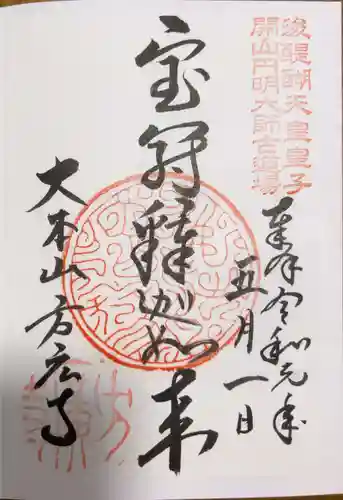 後醍醐天皇皇子
開山円明大師古道場
奉拝 令和元年
五月一日
宝冠釋迦如来
大本山 方広寺